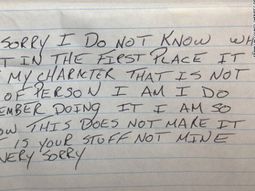 SORRY I DO NOT KNOW WH
T IN THE FIRST PLACE IT
MY CHARICTER THAT IS NOT
OF PERSON I AM I DO
EMBER DOING IT I AM SO
OW THIS DOES NOT MAKE IT
IS YOUR STUFF NOT MINE
VERY SORRY